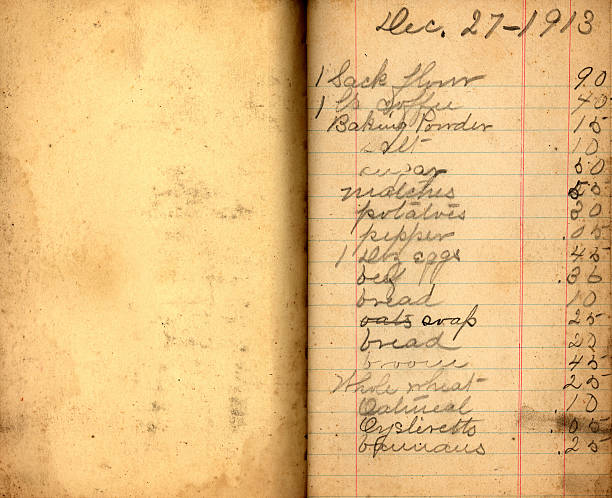 Dec. 27-1913
1 Sack flour 90
1 lb coffee 40
Baking Powder 15
salt 10
sugar 50
matches
potatoes 20
pepper .05
1 Doz eggs 45
beef
bread 10
oats soap 25
bread 20
broom 45
Whole wheat 25
Oatmeal .10
Oysteretts .05
bananas .25